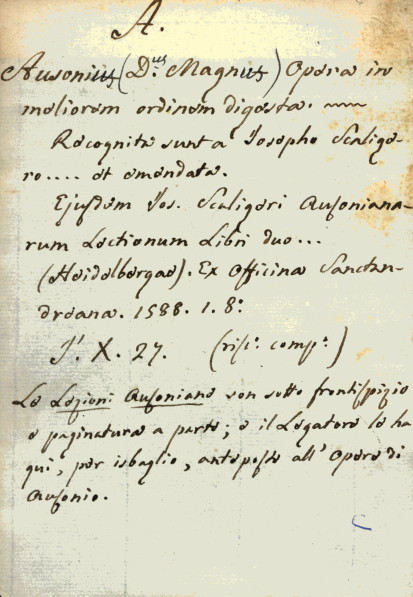 A.
Ausonius (D.us Magnus) Opera in
meliorem ordinem digesta.
Recognita sunt a Iosepho Scalige-
ro.... et emendata.
Ejusdem Ios. Scaligeri Ausoniana-
rum Lectionum Libri duo...
(Heidelbergae). Ex Officina Sanctan-
dreana. 1588. 1. 8.°
I'. X. 27. (risc.° comp.°)
Le Lezioni Ausoniane son sotto frontispizio
e paginatura a parte; e il Legatore le ha
qui, per isbaglio, anteposte all' Opere di
Ausonio.